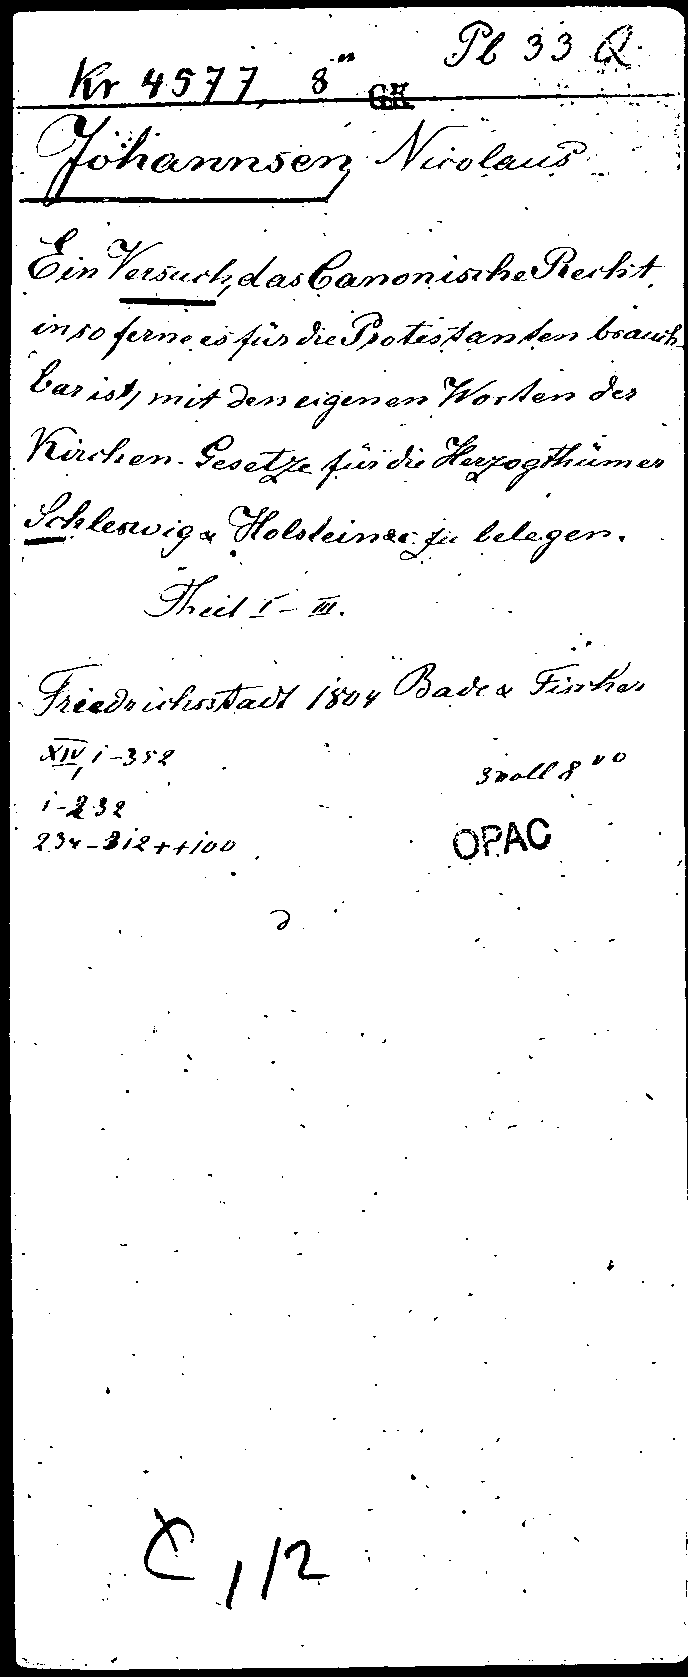 Pl 33 Q.
Kr 4577, 8°
Johannsen, Nicolaus
Ein Versuch, das Canonische Recht,
in so ferne es für die Protestanten brauch-
bar ist, mit den eigenen Worten der
Kirchen-Gesetze für die Herzogthümer
Schleswig & Holstein &c zu belegen.
Theil I – III.
Friedrichsstadt 1804 Bade & Fischer
XIV, 1-352
small 8vo
1-232
234-312++100
OPAC
C, 112